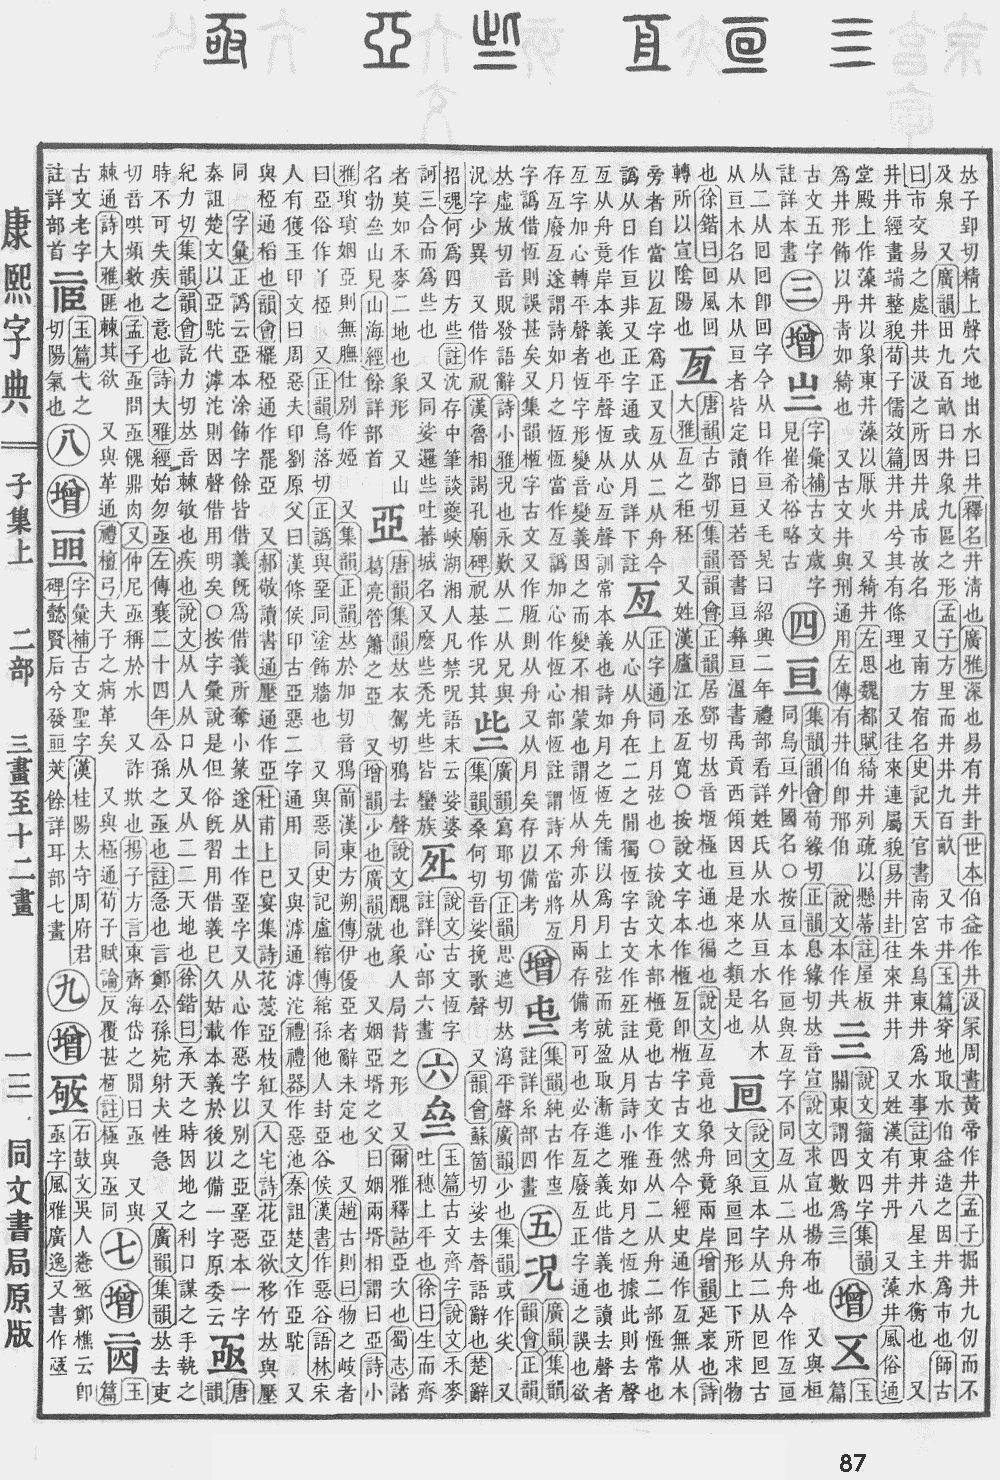 𠀤子郢切精上聲穴地出水曰井釋名井清也廣雅深也易有井卦世本伯益作井汲冢周書黃帝作井孟子掘井九仞而不
及泉 又廣韻田九百畝曰井象九區之形孟子方里而井井九百畝 又市井玉篇穿地取水伯益造之因井爲市也師古
曰市交易之處井共汲之所因井成市故名 又南方宿名史記天官書南宮朱鳥東井爲水事註東井八星主水衡也 又
井井經畫端整貌荀子儒效篇井井兮其有條理也 又往來連屬貌易井卦往來井井 又姓漢有井丹 又藻井風俗通
堂殿上作藻井以象東井藻以厭火 又綺井左思魏都賦綺井列疏以懸蔕註屋板
爲井形飾以丹青如綺也 又古文井與刑通用左傳有井伯卽邢伯 說文本作丼
亖 說文籀文四字集韻
關東謂四數爲亖
增 㐅 玉篇
古文五字
註詳本畫
三 增 亗 字彙補古文歲字
見崔希裕略古
四 亘 集韻韻會荀緣切正韻息緣切𠀤音宣說文求宣也揚布也 又與桓
同烏亘外國名○按亘本作𠄢與亙字不同亙从二从舟舟今作亙亘
从二从囘囘卽回字今从日作亘又毛晃曰紹興二年禮部看詳姓氏从水从亘水名从木
从亘木名从木从亘者皆定讀曰亘若晉書亘彝亘溫書禹貢西傾因亘是來之類是也
𠄢 說文亘本字从二从囘囘古
文回象亘回形上下所求物
也徐鍇曰回風回
轉所以宣陰陽也
亙 唐韻古鄧切集韻韻會正韻居鄧切𠀤音堩極也通也徧也說文亙竟也象舟竟兩岸增韻延袤也詩
大雅亙之秬秠 又姓漢廬江丞亙寬○按說文字本作㮓亙卽㮓字古文然今經史通作亙無从木
旁者自當以亙字爲正又亙从二从舟今
譌从日作亘非又正字通或从月詳下註
𠄨 正字通同上月弦也○按說文木部㮓竟也古文作亙从二从舟二部恆常也
从心从舟在二之閒獨恆字古文作𠄨註从月詩小雅如月之恆據此則去聲
亙从舟竟岸本義也平聲恆从心亙聲訓常本義也詩如月之恆先儒以爲月上弦而就盈取漸進之義此借義也讀去聲者
亙字加心轉平聲者恆字形變音變義因之而變不相蒙也謂恆从舟亦从月兩存備考可也必存亙廢亙正字通之誤也欲
存亙廢亙遂謂詩如月之恆當作亙譌加心作恆心部恆註謂詩不當將亙
字譌借恆則誤甚矣又集韻㮓字古文又作𦛎則从舟又从月矣存以備考
增 𡳾 集韻純古作𡳾
註詳糸部四畫
五 况 廣韻集韻
韻會正韻
𠀤虛放切音貺發語辭詩小雅况也永歎从二从兄與
況字少異 又借作祝漢魯相謁孔廟碑祝基作况其
些 廣韻寫耶切正韻思遮切𠀤瀉平聲廣韻少也集韻或作尐 又
集韻桑何切音娑挽歌聲 又韻會蘇箇切娑去聲語辭也楚辭
招魂何爲四方些註沈存中筆談夔峽湖湘人凡禁呪語末云娑婆
訶三合而爲些也 又同娑邏些吐蕃城名又麽些禿光些皆蠻族
𣦵 說文古文恆字
註詳心部六畫
六 亝 玉篇古文齊字說文禾麥
吐穗上平也徐曰生而齊
者莫如禾麥二地也象形 又山
名勃亝山見山海經餘詳部首
亞 唐韻集韻𠀤衣駕切鴉去聲說文醜也象人局背之形 又爾雅釋詁亞次也蜀志諸
葛亮管蕭之亞 又增韻少也廣韻就也 又姻亞壻之父曰姻兩壻相謂曰亞詩小
雅瑣瑣姻亞則無膴仕別作婭 又集韻正韻𠀤於加切音鴉前漢東方朔傳伊優亞者辭未定也 又趙古則曰物之岐者
曰亞俗作丫椏 又正韻烏落切正譌與堊同塗飾牆也 又與惡同史記盧綰傳綰孫他人封亞谷侯漢書作惡谷語林宋
人有獲玉印文曰周惡夫印劉原父曰漢條侯印古亞惡二字通用 又與滹通滹沱禮禮器作惡池秦詛楚文作亞駝 又
與椏通稻也韻會䆉椏通作罷亞 又郝敬讀書通壓通作亞杜甫上巳宴集詩花蕊亞枝紅又入宅詩花亞欲移竹𠀤與壓
同 字彙正譌云亞本涂飾字餘皆借義旣爲借義所奪小篆遂从土作堊字又从心作惡字以別之亞堊惡本一字
秦詛楚文以亞駝代滹沱則因聲借用明矣○按字彙說是但俗旣習用借義已久姑載本義於後以備一字原委云
亟 唐韻
紀力切集韻韻會訖力切𠀤音棘敏也疾也說文从人从口从又从二二天地也徐鍇曰承天之時因地之利口謀之手執之
時不可失疾之意也詩大雅經始勿亟左傳襄二十四年公孫之亟也註急也言鄭公孫宛射犬性急 又廣韻集韻𠀤去吏
切音唭頻數也孟子亟問亟餽鼎肉又仲尼亟稱於水 又詐欺也揚子方言東齊海岱之閒曰亟 又與
棘通詩大雅匪棘其欲 又與革通禮檀弓夫子之病革矣 又與極通荀子賦論反覆甚極註極與亟同
七 增 𠄷 玉篇
古文老字
註詳部首
𠄸 玉篇弋之
切陽氣也
八 增 𦔻 字彙補古文聖字漢桂陽太守周府君
碑懿賢后兮發𦔻莢餘詳耳部七畫
九 增 𠄻 石鼓文吳人㤽𠄻鄭樵云卽
亟字風雅廣逸又書作
康熙字典 子集上 二部 三畫至十二畫 一三 同文書局原版
87